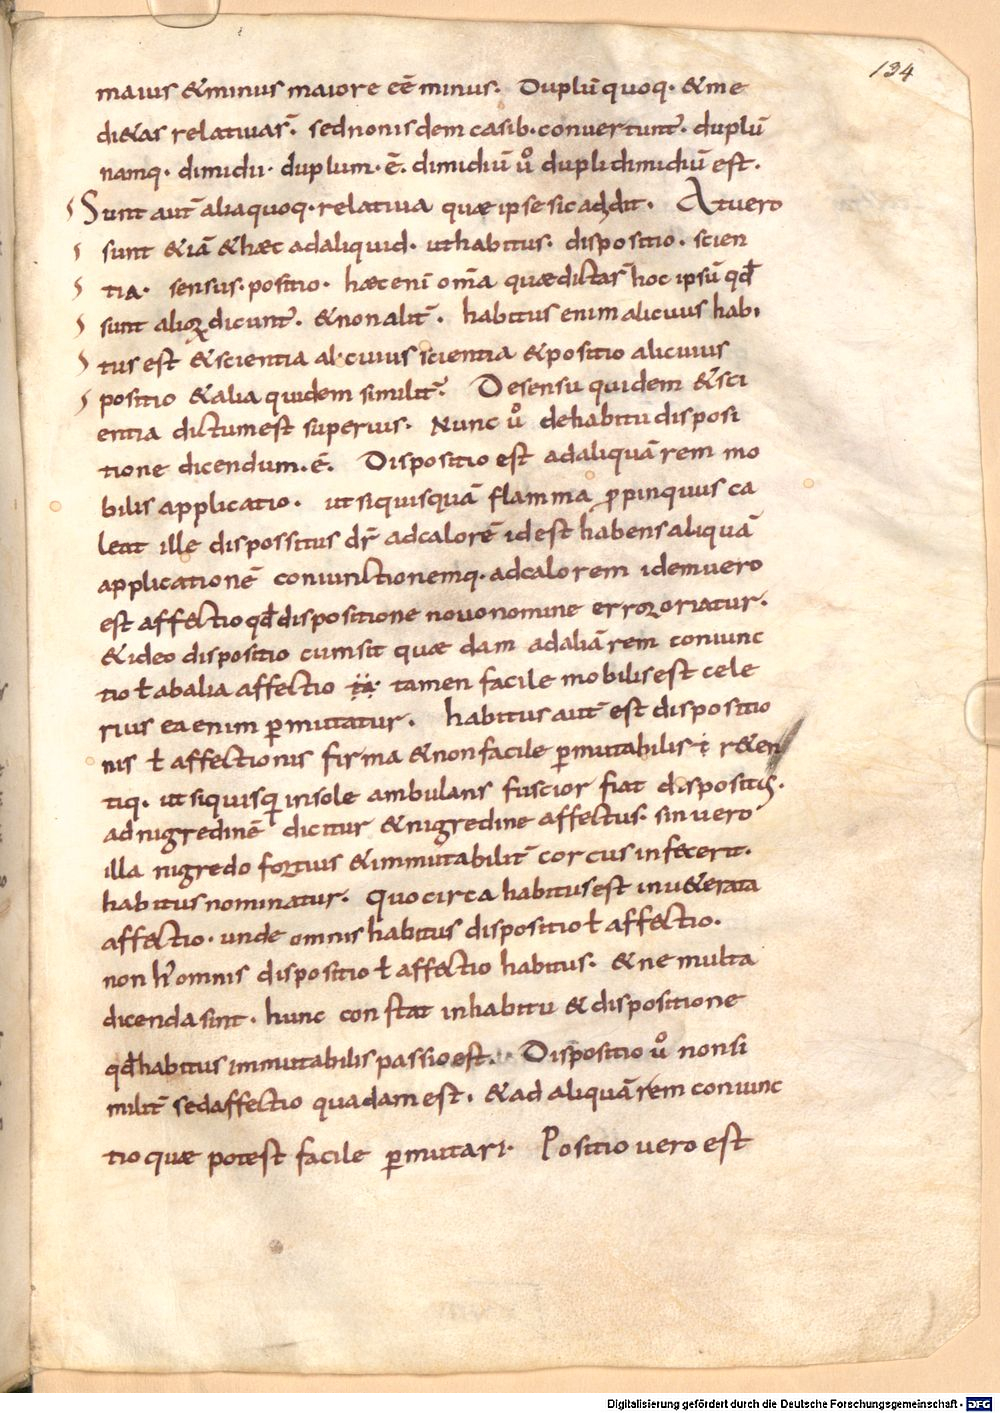 134
maius &minus maiore eē minus. Duplū quoq. &me
di&as relatiuas. sed non isdem casib. conuertunt. duplū
namq. dimidii. duplum. ē. dimidiū u° dupli dimidiū est.
Sunt aut alia quoq. relatiua quæ ipse sic addit. At uero
sunt &iā &hæc ad aliquid. ut habitus. dispositio. scien
tia. sensus. positio. hæc enī om̄a quæ dicta s̄ hoc ipsū qđ
sunt alioꝝ dicunt. & non alit. habitus enim alicuius habi
tus est &scientia alicuius scientia &positio alicuius
positio &alia quidem similit. De sensu quidem &sci
entia dictum est superius. Nunc u° de habitu disposi
tione dicendum. ē. Dispositio est ad aliquā rem mo
bilis applicatio. ut si quisquā flamma ꝓpinquus ca
leat ille dispossitus dr̄ ad calorē id est habens aliquā
applicationē coniunctionemq. ad calorem idem uero
est affectio qđ dispositione nouo nomine error oriatur.
&ideo dispositio cum sit quæ dam ad aliā rem coniunc
tio ł ab alia affectio tamen facile mobilis est cele
rius ea enim ꝑmutatur. habitus aut est dispositio
nis ł affectionis firma &non facile ꝑmutabilis r&en
tiq. ut si quisq in sole ambulans fuscior fiat dispositus.
ad nigredinē dicitur &nigredine affectus. sin uero
illa nigredo fortius &immutabilit corcus infecerit.
habitus nominatur. Quo circa habitus est inu&erata
affectio. unde omnis habitus dispositio ł affectio.
non h omnis dispositio ł affectio habitus. &ne multa
dicenda sint. hunc constat in habitu &dispositione
qđ habitus immutabilis passio est. Dispositio u° non si
milit sed affectio quadam est. &ad aliquā rem coniunc
tio quæ potest facile ꝑmutari. Positio uero est
Digitalisierung gefördert durch die Deutsche Forschungsgemeinschaft - DFG